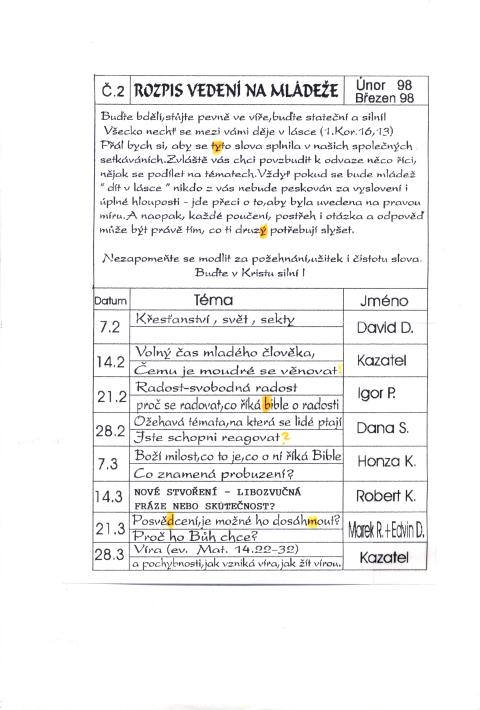 Č.2 ROZPIS VEDENÍ NA MLÁDEŽE Únor 98
Březen 98
Buďte bdělí,stůjte pevně ve víře,buďte stateční a silní!
Všecko nechť se mezi vámi děje v lásce (1.Kor.16,13)
Přál bych si, aby se tyto slova splnila v našich společných
setkáváních.Zvláště vás chci povzbudit k odvaze něco říci,
nějak se podílet na tématech.Vždyť pokud se bude mládež
" dít v lásce " nikdo z vás nebude peskován za vyslovení i
úplné hlouposti - jde přeci o to,aby byla uvedena na pravou
míru.A naopak, každé poučení, postřeh i otázka a odpověď
může být právě tím, co ti druzý potřebují slyšet.
Nezapomeňte se modlit za požehnání,užitek i čistotu slova.
Buďte v Kristu silní !
Datum Téma Jméno
7.2 Křesťanství , svět , sekty David D.
14.2 Volný čas mladého člověka, Kazatel
Čemu je moudré se věnovat!
21.2 Radost-svobodná radost Igor P.
proč se radovat,co říká bible o radosti
28.2 Ožehavá témata,na která se lidé ptají Dana S.
Jste schopni reagovat?
7.3 Boží milost,co to je,co o ní říká Bible Honza K.
Co znamená probuzení?
14.3 NOVÉ STVOŘENÍ - LIBOZVUČNÁ Robert K.
FRÁZE NEBO SKUTEČNOST?
21.3 Posvědcení,je možné ho dosáhmout? Marek R.+Edvin D.
Proč ho Bůh chce?
28.3 Víra (ev. Mat. 14.22-32) Kazatel
a pochybnosti,jak vzniká víra,jak žít vírou.